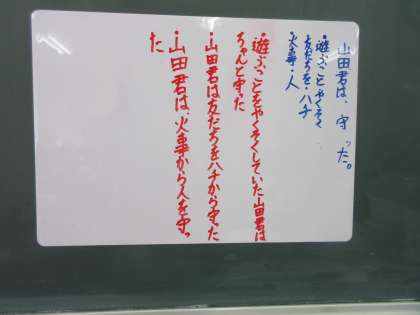 山田君は、守った。
・遊ぶことやくそく
友だちを・ハチ
火事・人
・遊ぶことをやくそくしていた山田君は
ちゃんと守った
・山田君は友だちをハチから守った
・山田君は、火事から人を守っ
た